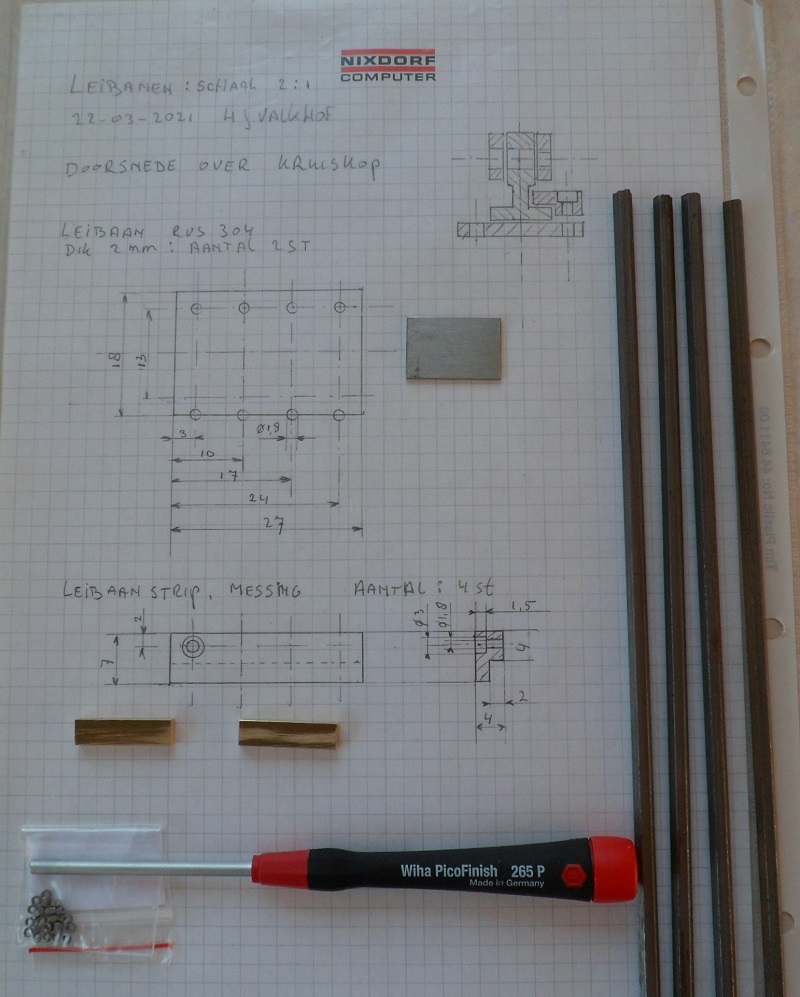 NIXDORF
COMPUTER
LEIBANEN : SCHAAL 2:1
22-03-2021 HJ VALKHOF
DOORSNEDE OVER KRUISKOP
LEIBAAN RVS 304
DIK 2 mm : AANTAL 2 ST
18
13
3
Ø1,8
10
17
24
27
LEIBAAN STRIP, MESSING AANTAL : 4 st
2
7
Ø3
Ø1,8
1,5
4
2
4
Wiha PicoFinish 265 P
Made in Germany